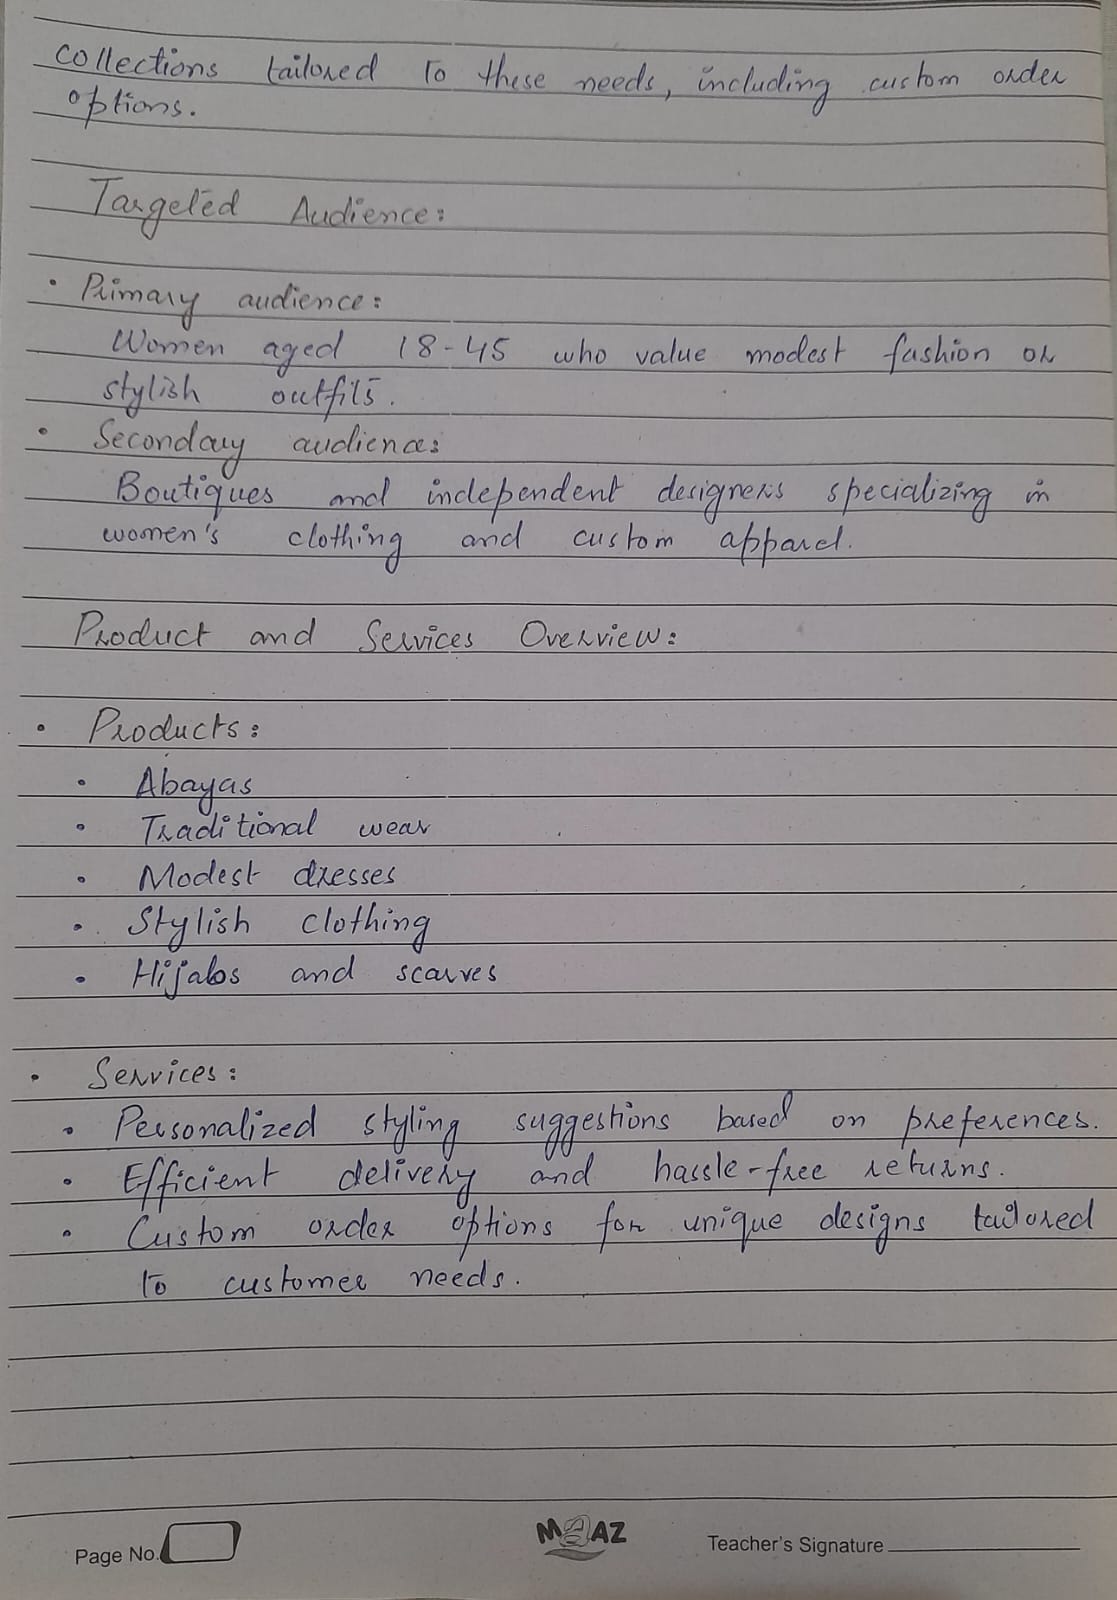 collections tailored to these needs, including custom order
options.
Targeted Audience:
• Primary audience:
Women aged 18-45 who value modest fashion or
stylish outfits.
• Secondary audience:
Boutiques and independent designers specializing in
women's clothing and custom apparel.
Product and Services Overview:
• Products:
• Abayas
• Traditional wear
• Modest dresses
• Stylish clothing
• Hijabs and scarves
• Services:
• Personalized styling suggestions based on preferences.
• Efficient delivery and hassle-free returns.
• Custom order options for unique designs tailored
to customer needs.
Page No.
MAAZ
Teacher's Signature